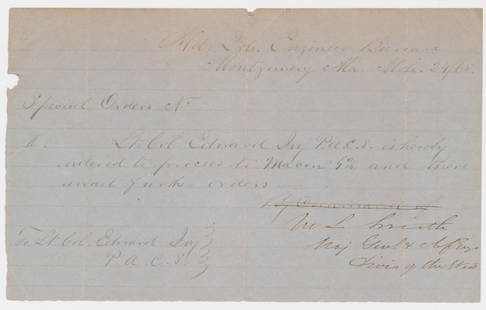 Hd. Qrs. Engineer Bureau
Montgomery Ala. 24/65
Special Orders No
II. Lt Col Edward Ivy P.A.C.S. is hereby
ordered to proceed to Macon Ga and there
await further orders
By Command of
M L Smith
Maj Genl &
Divis of the West
To Lt. Col. Edward Ivy
P. A. C. S.